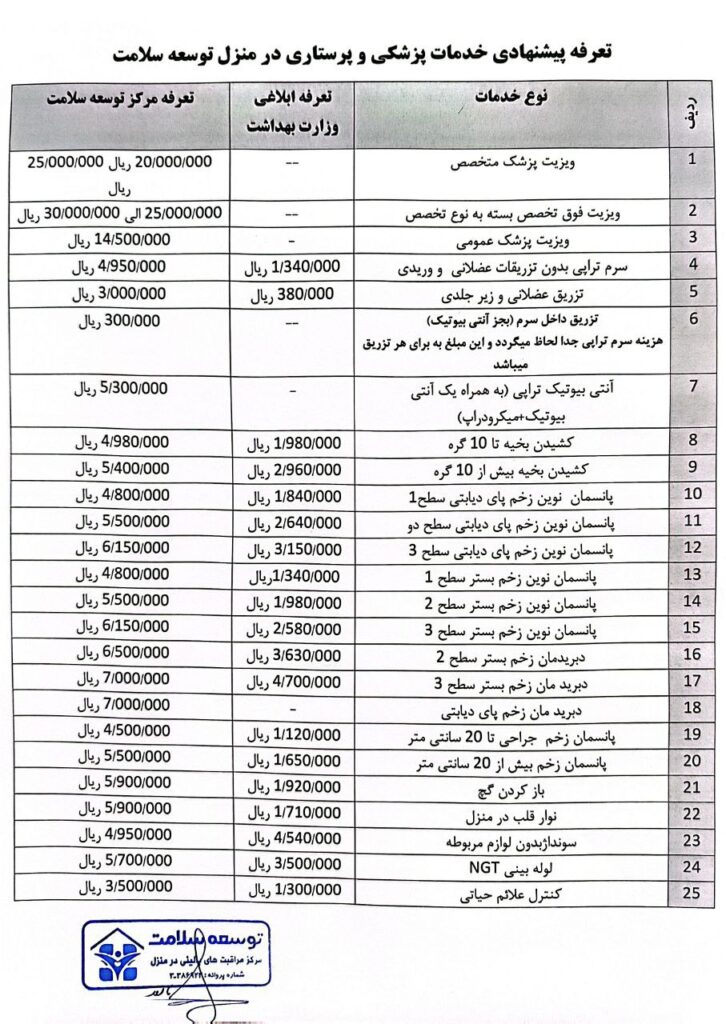 تعرفه پیشنهادی خدمات پزشکی و پرستاری در منزل توسعه سلامت
ردیف نوع خدمات تعرفه ابلاغی تعرفه مرکز توسعه سلامت
وزارت بهداشت
1 ویزیت پزشک متخصص -- 20/000/000 ریال 25/000/000
ریال
2 ویزیت فوق تخصص بسته به نوع تخصص -- 25/000/000 الی 30/000/000 ریال
3 ویزیت پزشک عمومی - 14/500/000 ریال
4 سرم تراپی بدون تزریقات عضلانی و وریدی 1/340/000 ریال 4/950/000 ریال
5 تزریق عضلانی و زیر جلدی 380/000 ریال 3/000/000 ریال
6 تزریق داخل سرم (بجز آنتی بیوتیک) -- 300/000 ریال
هزینه سرم تراپی جدا لحاظ میگردد و این مبلغ به برای هر تزریق
میباشد
7 آنتی بیوتیک تراپی (به همراه یک آنتی - 5/300/000 ریال
بیوتیک+میکرودراپ)
8 کشیدن بخیه تا 10 گره 1/980/000 ریال 4/980/000 ریال
9 کشیدن بخیه بیش از 10 گره 2/960/000 ریال 5/400/000 ریال
10 پانسمان نوین زخم پای دیابتی سطح1 1/840/000 ریال 4/800/000 ریال
11 پانسمان نوین زخم پای دیابتی سطح دو 2/640/000 ریال 5/500/000 ریال
12 پانسمان نوین زخم پای دیابتی سطح 3 3/150/000 ریال 6/150/000 ریال
13 پانسمان نوین زخم بستر سطح 1 1/340/000ریال 4/800/000 ریال
14 پانسمان نوین زخم بستر سطح 2 1/980/000 ریال 5/500/000 ریال
15 پانسمان نوین زخم بستر سطح 3 2/580/000 ریال 6/150/000 ریال
16 دبریدمان زخم بستر سطح 2 3/630/000 ریال 6/500/000 ریال
17 دبرید مان زخم بستر سطح 3 4/700/000 ریال 7/000/000 ریال
18 دبرید مان زخم پای دیابتی - 7/000/000 ریال
19 پانسمان زخم جراحی تا 20 سانتی متر 1/120/000 ریال 4/500/000 ریال
20 پانسمان زخم بیش از 20 سانتی متر 1/650/000 ریال 5/500/000 ریال
21 باز کردن گچ 1/920/000 ریال 5/900/000 ریال
22 نوار قلب در منزل 1/710/000 ریال 5/900/000 ریال
23 سونداژبدون لوازم مربوطه 4/540/000 ریال 4/950/000 ریال
24 لوله بینی NGT 3/500/000 ریال 5/700/000 ریال
25 کنترل علائم حیاتی 1/300/000 ریال 3/500/000 ریال
توسعه سلامت
مرکز مراقبت های بالینی در منزل
شماره پروانه: